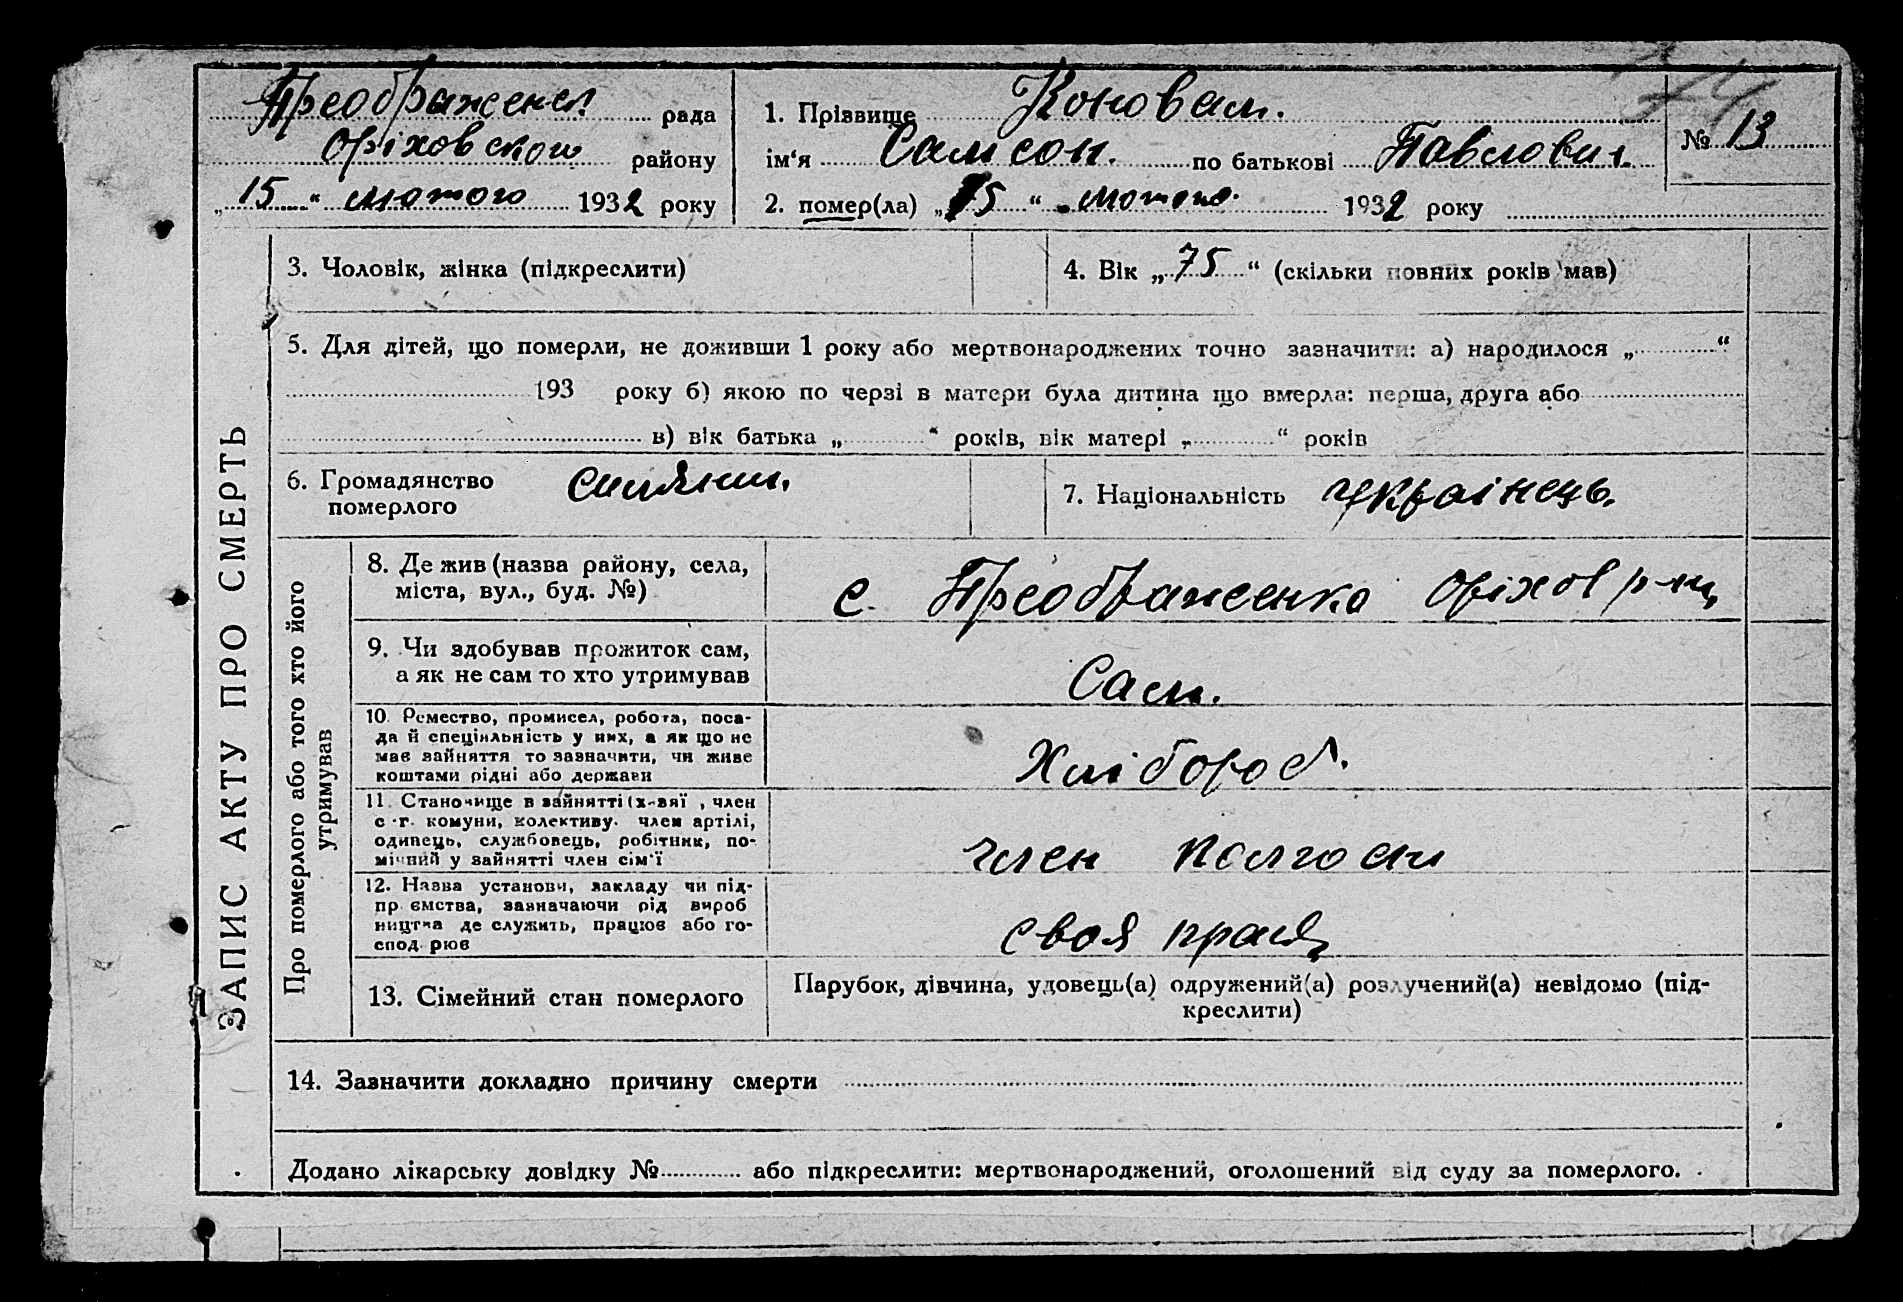 Преображенс рада
Оріховского району
„15“ лютого 1932 року
1. Прізвище Коновал.
ім‘я Самсон. по батькові Павлович
№ 13
2. помер(ла) „15“ лютого. 1932 року
3. Чоловік, жінка (підкреслити)
4. Вік „75“ (скільки повних років мав)
5. Для дітей, що померли, не доживши 1 року або мертвонароджених точно зазначити: а) народилося „ “
193 року б) якою по черзі в матери була дитина що вмерла: перша, друга або
в) вік батька „ “ років, вік матері „ “ років
6. Громадянство
померлого
7. Національність українець.
ЗАПИС АКТУ ПРО СМЕРТЬ
Про померлого або того хто його
утримував
8. Де жив (назва району, села,
міста, вул., буд. №)
с. Преображенка Оріхов р-ну
9. Чи здобував прожиток сам,
а як не сам то хто утримував
Сам.
10. Ремество, промисел, робота, поса-
да й спеціяльність у них, а як що не
має зайняття то зазначити, чи живе
коштами рідні або держави
Хлібороб.
11. Становище в зайнятті (х-вяї , член
с.-г. комуни, колективу. член артілі,
одинець, службовець, робітник, по-
мічний у зайнятті член сім'ї
член колгоспу
12. Назва установи, закладу чи під-
пр ємства, зазначаючи рід вироб
ництва де служить, працює або го-
спод рює
своя праця
13. Сімейний стан померлого
Парубок, дівчина, удовець(а) одружений(а) розлучений(а) невідомо (під-
креслити)
14. Зазначити докладно причину смерти
Додано лікарську довідку № або підкреслити: мертвонароджений, оголошений від суду за померлого.